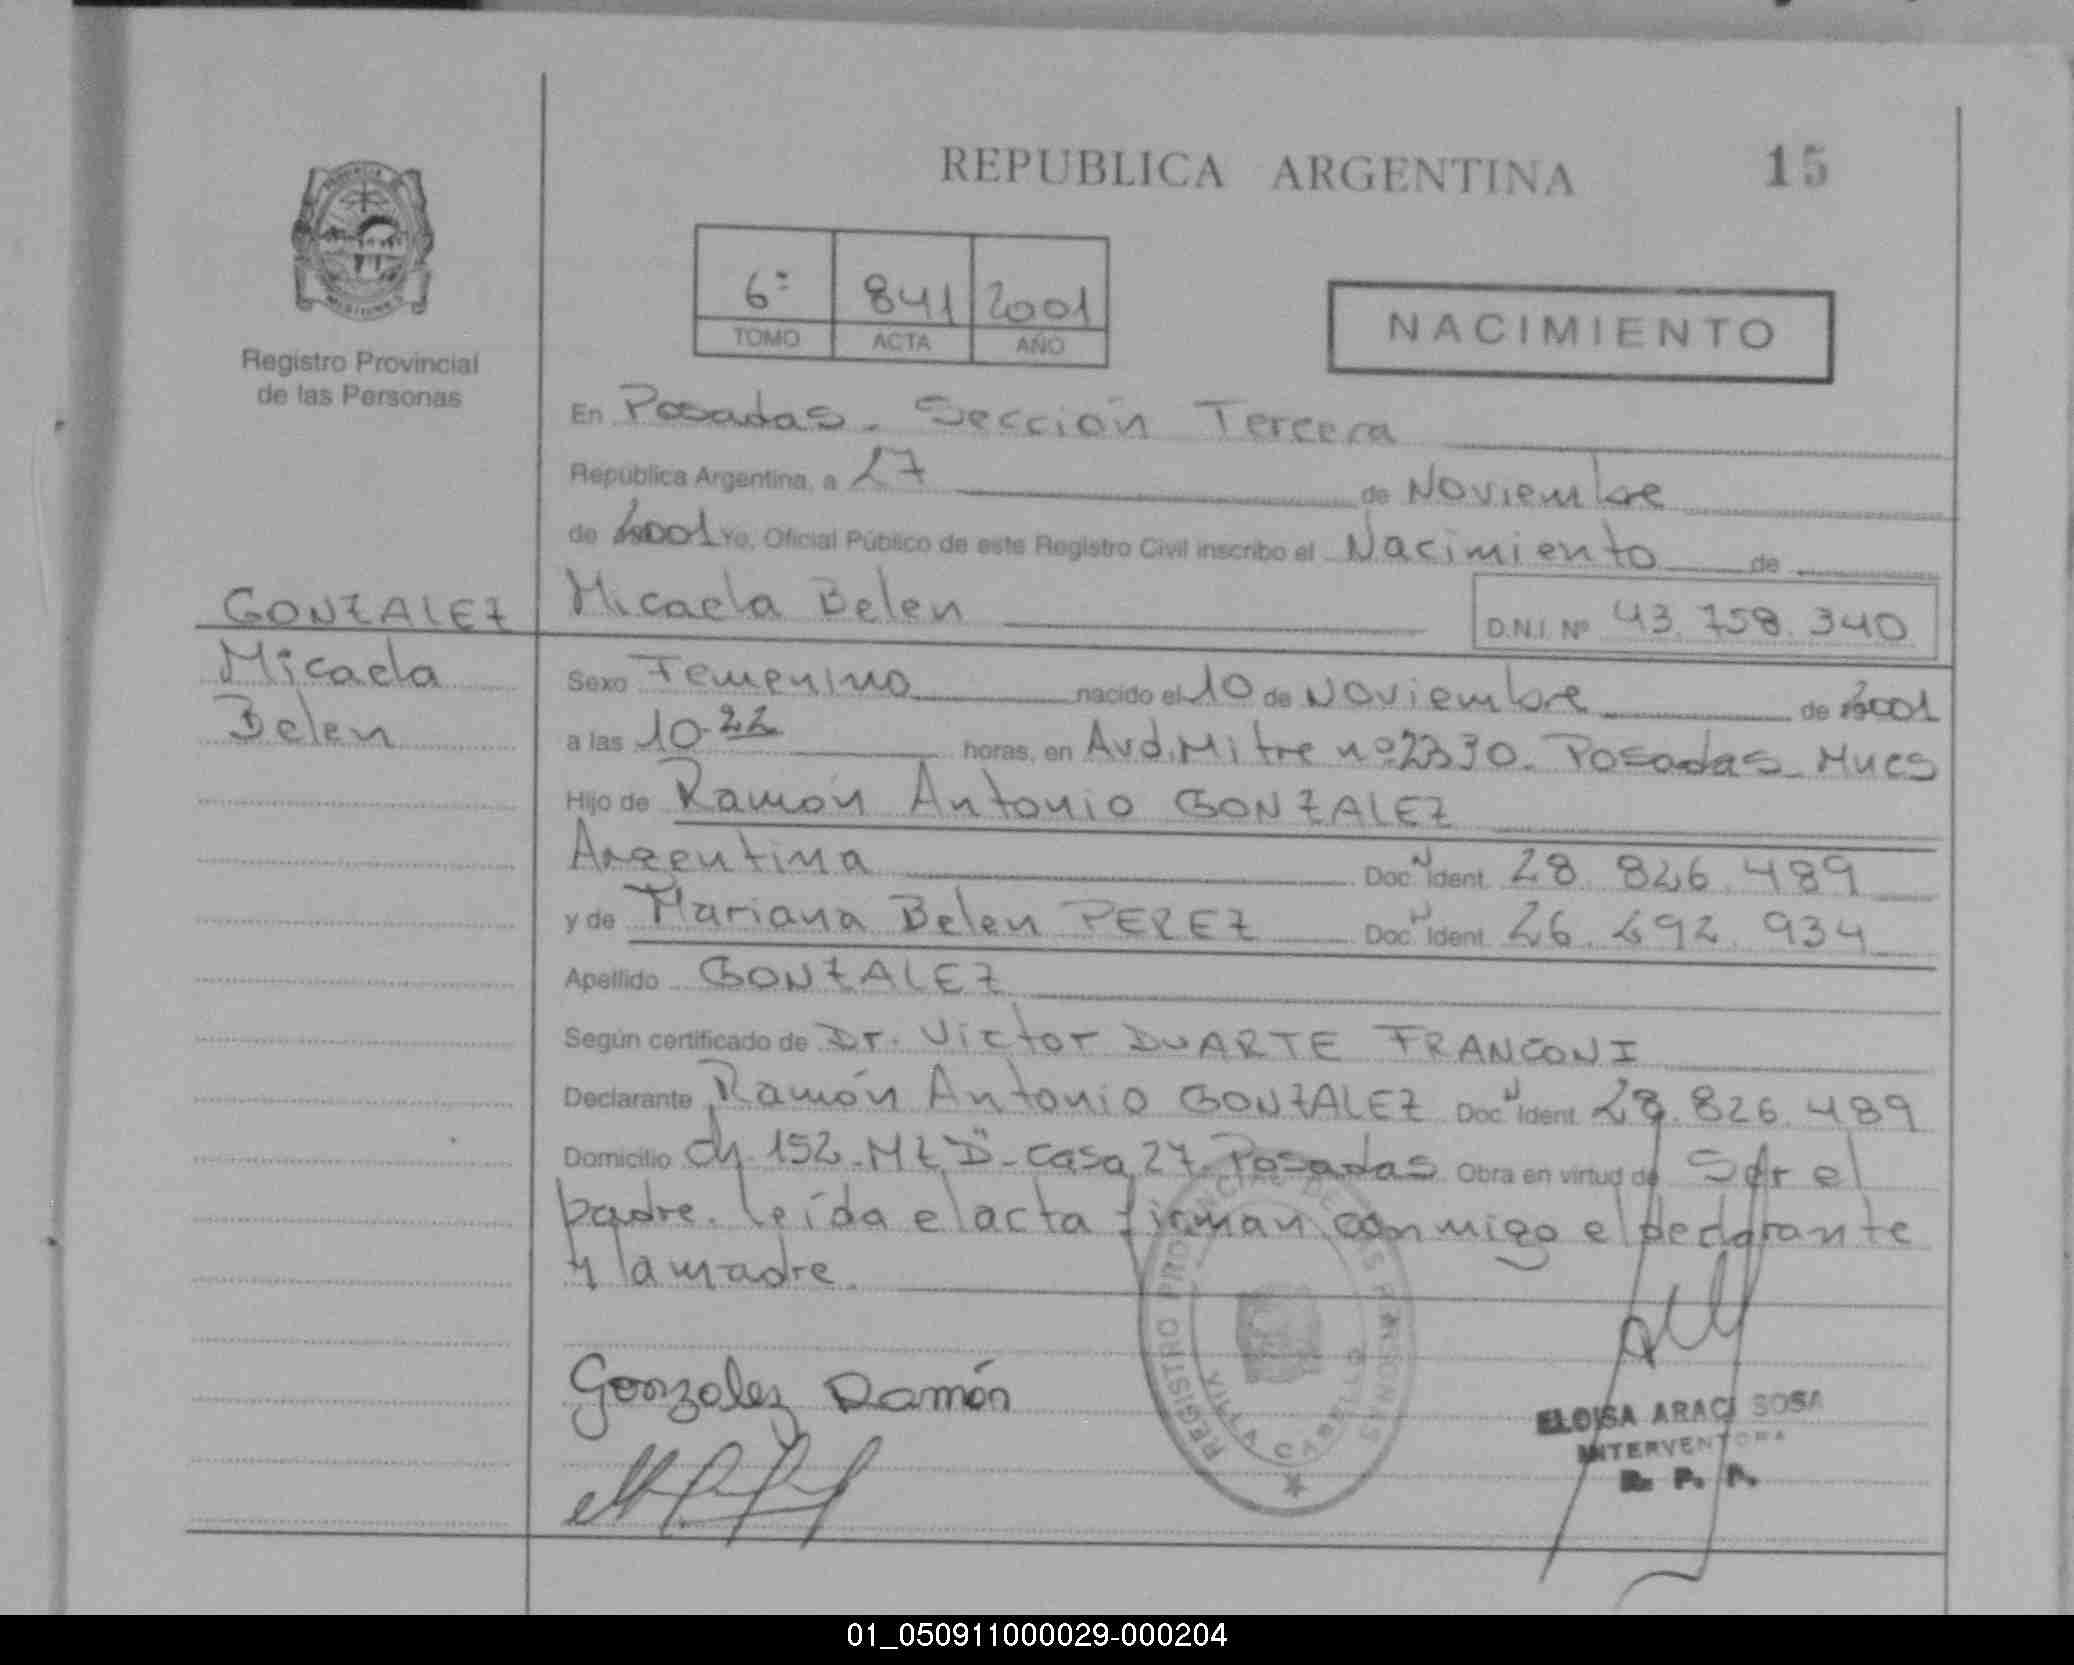 REPUBLICA ARGENTINA
15
6º 841 2001
TOMO ACTA AÑO
NACIMIENTO
Registro Provincial
de las Personas
En Posadas. Sección Tercera
República Argentina, a 27 de Noviembre
de 2001 Yo, Oficial Público de este Registro Civil inscribo el Nacimiento de
Micaela Belen D.N.I. Nº 43.758.340
GONZALEZ
Micaela
Belen
Sexo Femenino nacido el 10 de Noviembre de 2001
a las 10.22 horas, en Avd. Mitre nº 2330. Posadas. Mnes
Hijo de Ramón Antonio GONZALEZ
Argentina Doc. N Ident. 28.826.489
y de Mariana Belen PEREZ Doc. N Ident. 26.692.934
Apellido GONZALEZ
Según certificado de Dr. Victor DUARTE FRANCONI
Declarante Ramón Antonio GONZALEZ Doc. N Ident. 28.826.489
Domicilio Ch 152-MZ"D"-casa 27-Posadas Obra en virtud de Ser el
padre. Leída el acta firman conmigo el Declarante
y la madre.
Gonzalez Ramón
REGISTRO PROVINCIAL DE LAS PERSONAS
VILLA CABELLO
ELOISA ARACI SOSA
INTERVENTORA
R. P. P.
01_050911000029-000204